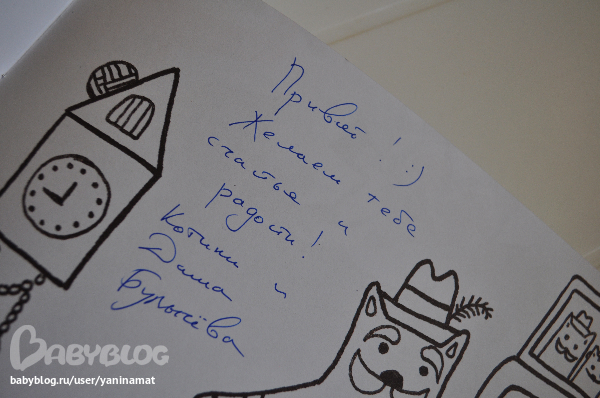 Привет! :)
Желаем тебе
счастья и
радости!
Котики и
Даша
Булычёва
BABYBLOG
babyblog.ru/user/yaninamat